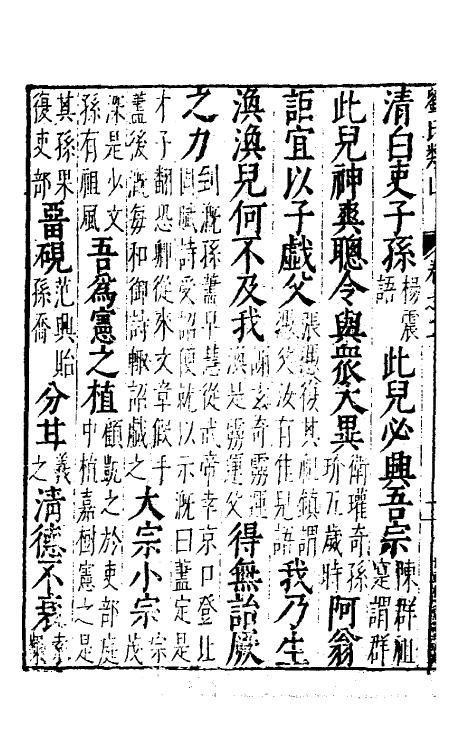 劉氏類山
卷之二
清白吏子孫 楊震
語 此兒必興吾宗 陳群祖
寔謂群
此兒神爽聰令與衆大異 衛瓘奇孫
玠五歲時 阿翁
詎宜以子戲父 張憑從其祖鎮謂
憑父汝有佳兒語 我乃生
渙渙兒何不及我 謝玄奇靈運
渙是靈運父 得無詒厥
之力 到溉孫藎早慧從武帝幸京口登北
固賦詩受詔便就以示溉曰藎定是
才子翻恐卿從來文章假手
藎後溉每和御詩輒詔戲之 大宗小宗 宗
茂
深是少文
孫有祖風 吾爲憲之植 顧凱之於吏部庭
中植嘉樹憲之是
其孫果
復吏部 畱硯 范興貽
孫喬 分甘 羲
之 淸德不衰